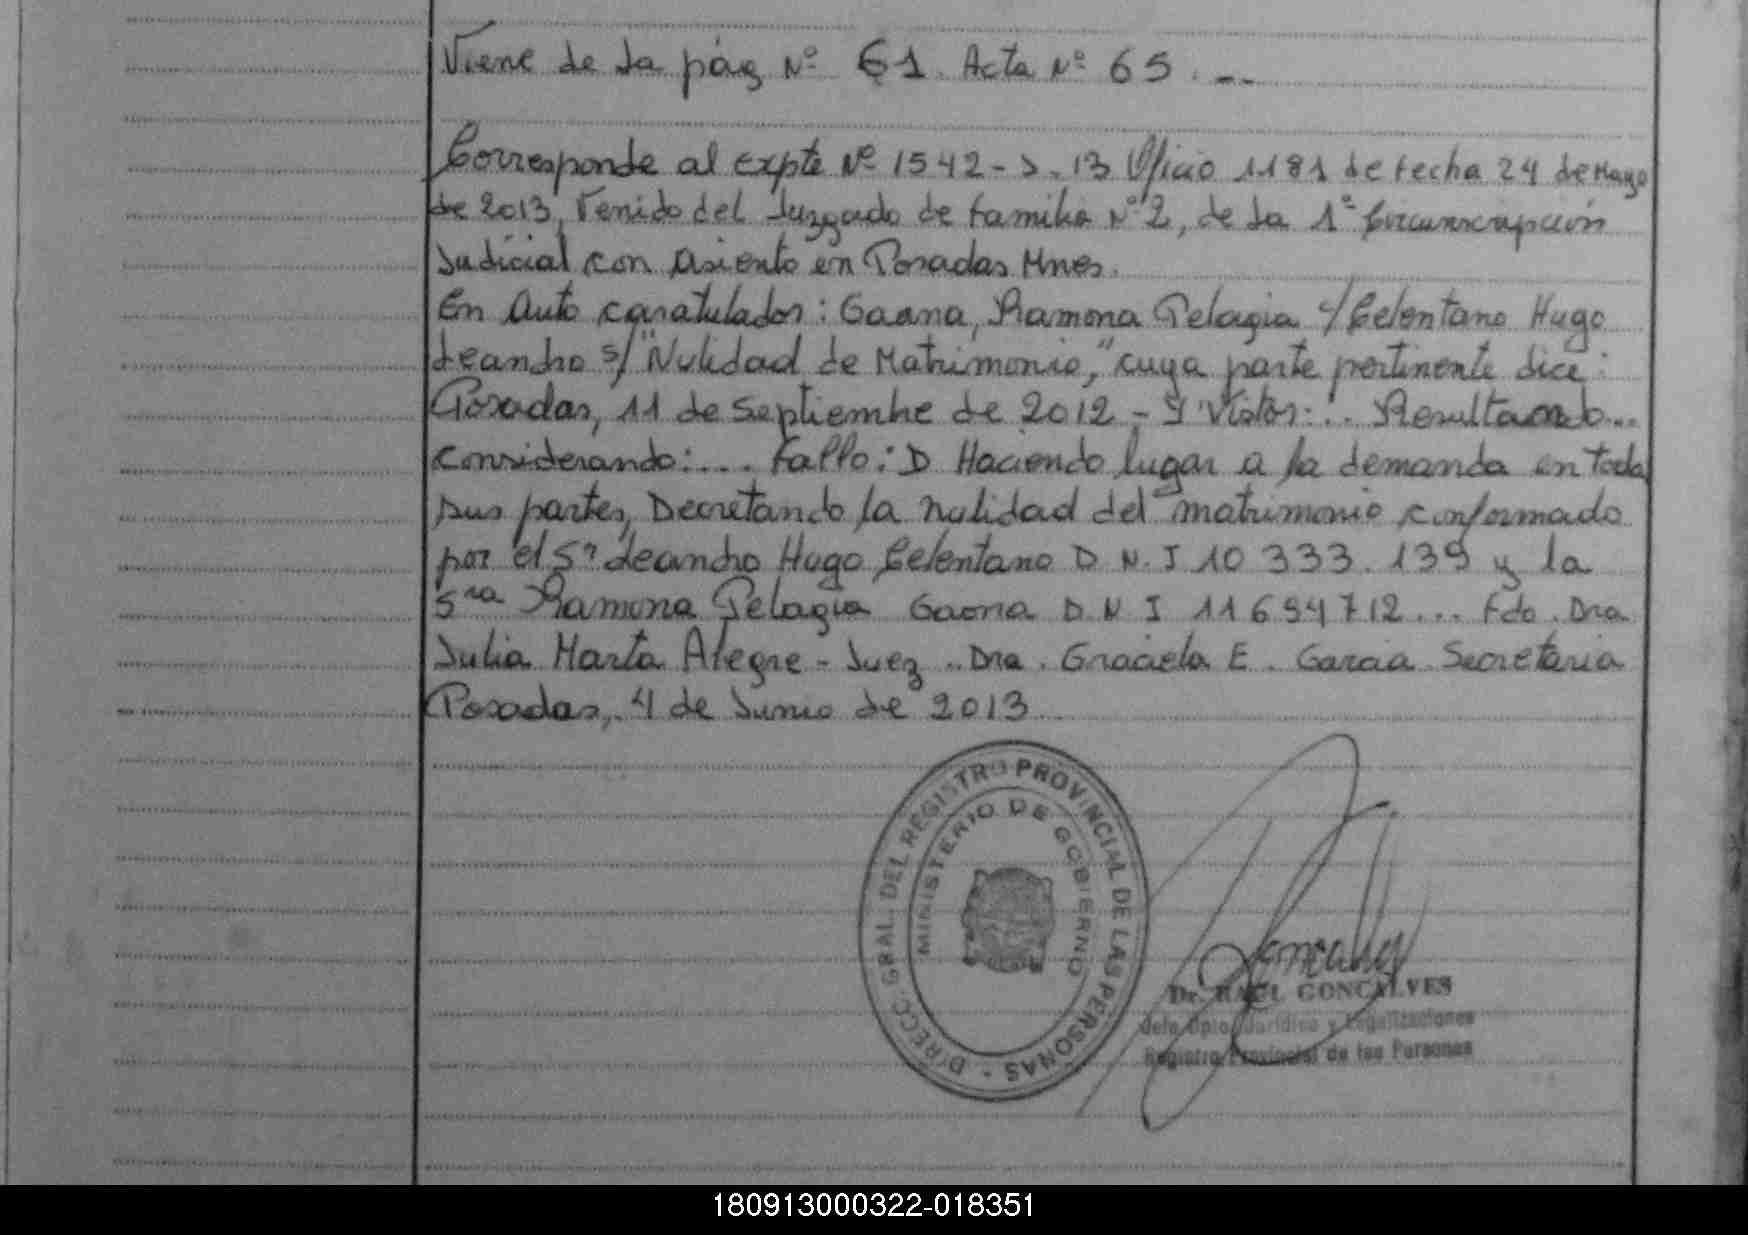 Viene de la pág Nº 61. Acta Nº 65. --
Corresponde al Expte Nº 1542-S. 13 Oficio 1181 de fecha 24 de Mayo
de 2013, Venido del Juzgado de familia Nº 2, de la 1º Circunscripción
Judicial con asiento en Posadas Mnes.
En Auto caratulados: Gaona, Ramona Pelagia c/ Celentano Hugo
Leandro s/ "Nulidad de Matrimonio," cuya parte pertinente dice:
Posadas, 11 de Septiembre de 2012 - Y Vistos:... Resultando...
Considerando:.... Fallo: I) Haciendo lugar a la demanda en toda
sus partes, Decretando la nulidad del matrimonio conformado
por el Sr Leandro Hugo Celentano D.N.I 10 333.139 y la
Sra Ramona Pelagia Gaona D.N.I 11694712... Fdo. Dra
Julia Marta Alegre - Juez .. Dra. Graciela E. Garcia Secretaria
Posadas, 4 de Junio de 2013
DIRECC. GRAL. DEL REGISTRO PROVINCIAL DE LAS PERSONAS -
MINISTERIO DE GOBIERNO
Dr. RAUL GONCALVES
Jefe Dpto. Jurídico y Legalizaciones
Registro Provincial de las Personas
180913000322-018351